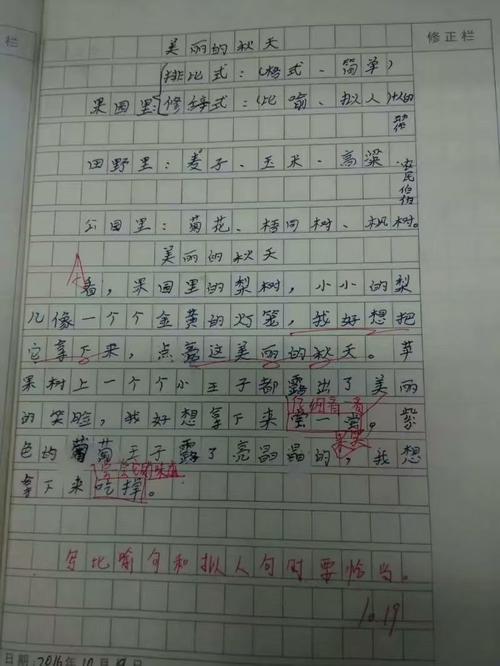 栏
修正栏
美丽的秋天
排比式：(格式、简单)
果园里：修辞式：(比喻、拟人)人的
动作
田野里：麦子、玉米、高粱.农民伯伯
公园里：菊花、梧同树、枫树。
美丽的秋天
看，果园里的梨树，小小的梨
儿像一个个金黄的灯笼，我好想把
它拿下来，点亮这美丽的秋天。苹
果树上一个个小王子都露出了美丽
仔细看看
的笑脸，我好想拿下来尝一尝。紫
色的葡萄王子露了亮晶晶的，我想
拿下来吃掉。
写比喻句和拟人句时要恰当。
10.19
日期：2016年10月19日